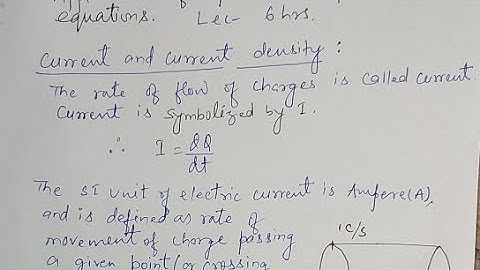 equations. Lec- 6 hrs.
Current and current density :
The rate of flow of charges is called current.
Current is symbolized by I.
∴ I = dQ/dt
The SI unit of electric current is Ampere(A),
and is defined as rate of
movement of charge passing 1 C/S
a given point/or crossing